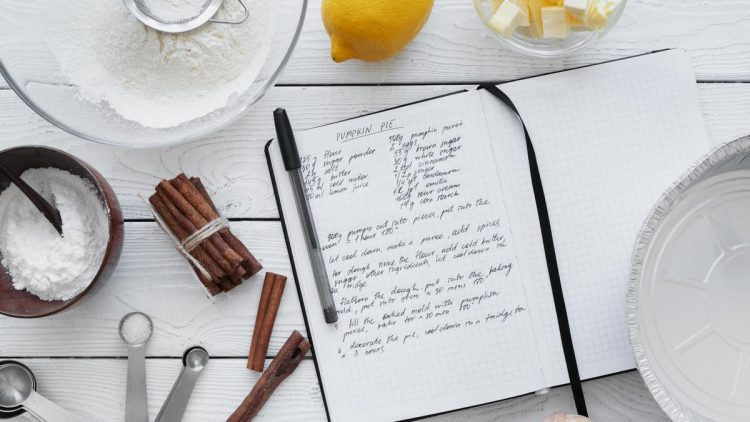 PUMPKIN PIE
225 g flour
g sugar powder
g butter
ml cold water
ml lemon juice
900g pumpkin puree
2 eggs
55 g brown sugar
30 g white sugar
1 tbl cinnamon
1/2 g ginger
1/4 g cardamom
160g sour cream
19g corn starch
900g pumpkin cut into pieces, put into the
oven, 1 hour 180°
let cool down, make a puree, add spices
for dough, sieve the flour, add cold butter,
sugar, other ingredients, let cool down in
the fridge
Flattern the dough, put into the baking
mold, put into oven 30 min 180°
fill the baked mold with pumpkin
puree, bake for 30 min 180°
decorate the pie, cool down in a fridge for
3 hours